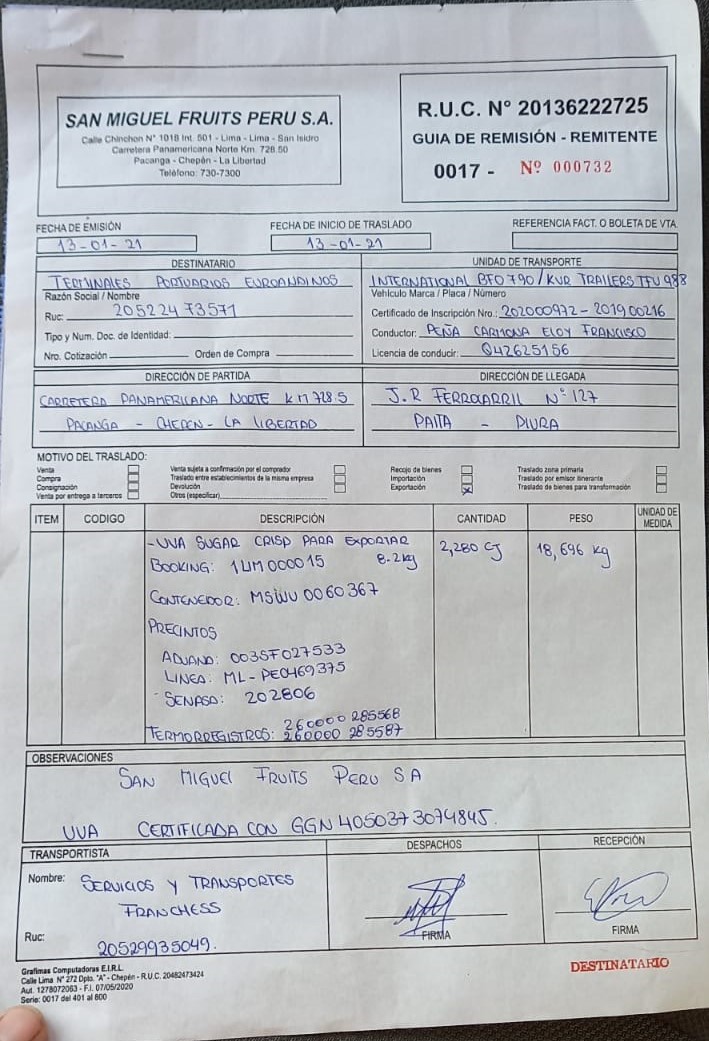 SAN MIGUEL FRUITS PERU S.A.
Calle Chinchon N° 1018 Int. 501 - Lima - Lima - San Isidro
Carretera Panamericana Norte Km. 728.50
Pacanga - Chepén - La Libertad
Teléfono: 730-7300
R.U.C. N° 20136222725
GUIA DE REMISIÓN - REMITENTE
0017 - Nº 000732
FECHA DE EMISIÓN FECHA DE INICIO DE TRASLADO REFERENCIA FACT. O BOLETA DE VTA.
13-01-21 13-01-21
DESTINATARIO
TERMINALES PORTUARIOS EUROANDINOS
Razón Social / Nombre
Ruc: 20522473571
Tipo y Num. Doc. de Identidad:
Nro. Cotización Orden de Compra
UNIDAD DE TRANSPORTE
INTERNATIONAL BFO790/KVR TRAILERS TFU988
Vehículo Marca / Placa / Número
Certificado de Inscripción Nro.: 202000972-201900216
Conductor: PEÑA CARMONA ELOY FRANCISCO
Licencia de conducir: Q42625156
DIRECCIÓN DE PARTIDA
CARRETERA PANAMERICANA NORTE KM 728.5
PACANGA - CHEPEN - LA LIBERTAD
DIRECCIÓN DE LLEGADA
J.R FERROCARRIL N°127
PAITA - PIURA
MOTIVO DEL TRASLADO:
Venta
Compra
Consignación
Venta por entrega a terceros
Venta sujeta a confirmación por el comprador
Traslado entre establecimientos de la misma empresa
Devolución
Otros (especificar)
Recojo de bienes
Importación
Exportación X
Traslado zona primaria
Traslado por emisor itinerante
Traslado de bienes para transformación
ITEM CODIGO DESCRIPCIÓN CANTIDAD PESO UNIDAD DE MEDIDA
-UVA SUGAR CRISP PARA EXPORTAR 2,280 CJ 18,696 kg
BOOKING: 1LIM000015 8.2kg
CONTENEDOR: MSWU 0060367
PRECINTOS
ADUANA: 003SF027533
LINEA: ML-PE0469375
SENASA: 202806
260000 285568
TERMORREGISTROS: 260000 285587
OBSERVACIONES
SAN MIGUEL FRUITS PERU SA
UVA CERTIFICADA CON GGN 4050373074845.
TRANSPORTISTA
Nombre: SERVICIOS Y TRANSPORTES
FRANCHESS
Ruc: 20529935049.
DESPACHOS
FIRMA
RECEPCIÓN
FIRMA
Grafimas Computadoras E.I.R.L.
Calle Lima N° 272 Dpto. "A" - Chepén - R.U.C. 20482473424
Aut. 1278072063 - F.I. 07/05/2020
Serie: 0017 del 401 al 800
DESTINATARIO